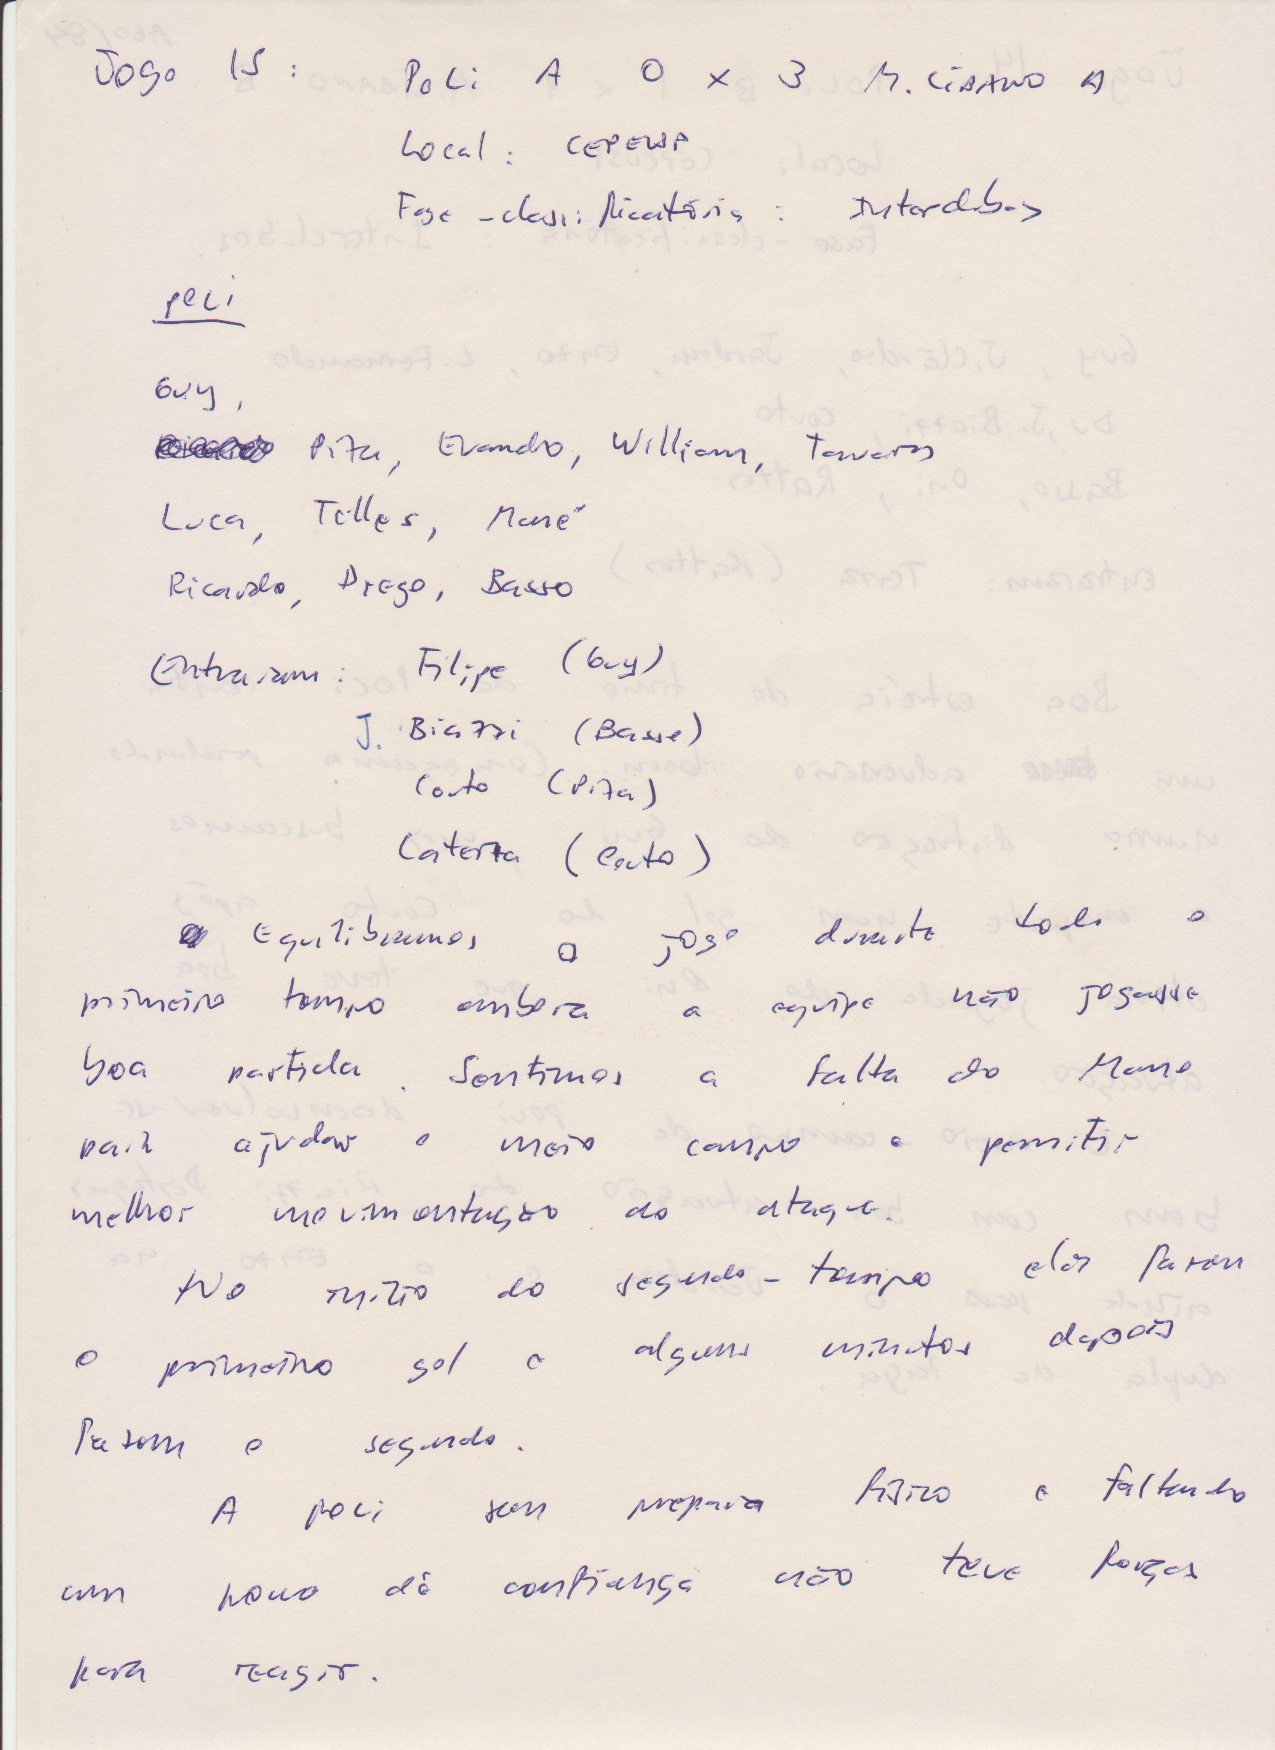 Jogo 15: Poli A 0 x 3 M. Líbano A
Local: CEPEUSP
Fase-classificatória: Interclubes
Poli
Guy,
Piza, Evandro, William, Tavares
Luca, Telles, Mané
Ricardo, Diego, Basso
Entraram: Filipe (Guy)
J. Biazzi (Basso)
Couto (Piza)
Caterza (Couto)
Equilibramos o jogo durante todo o
primeiro tempo embora a equipe não jogasse
boa partida. Sentimos a falta do Mano
para ajudar o meio campo e permitir
melhor movimentação do ataque.
No início do segundo-tempo eles fazem
o primeiro gol e alguns minutos depois
fazem o segundo.
A poli sem preparo físico e faltando
um pouco de confiança não teve forças
para reagir.